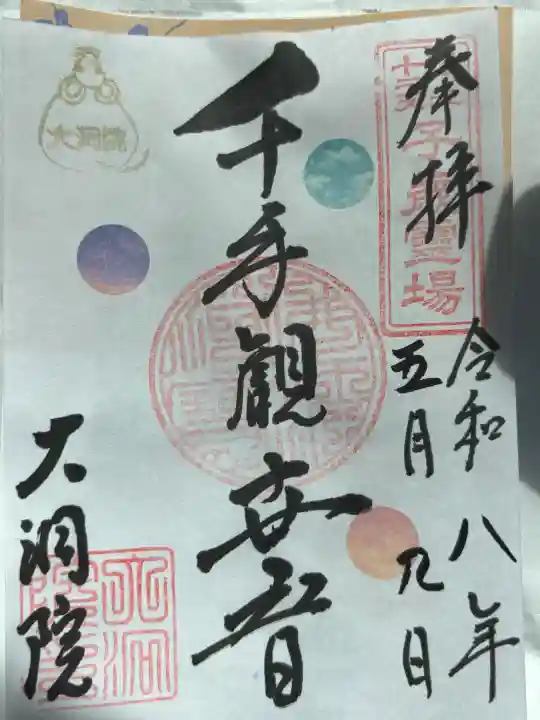 奉拝
霊場
令和八年
五月九日
千手觀世音
大洞院
大洞院